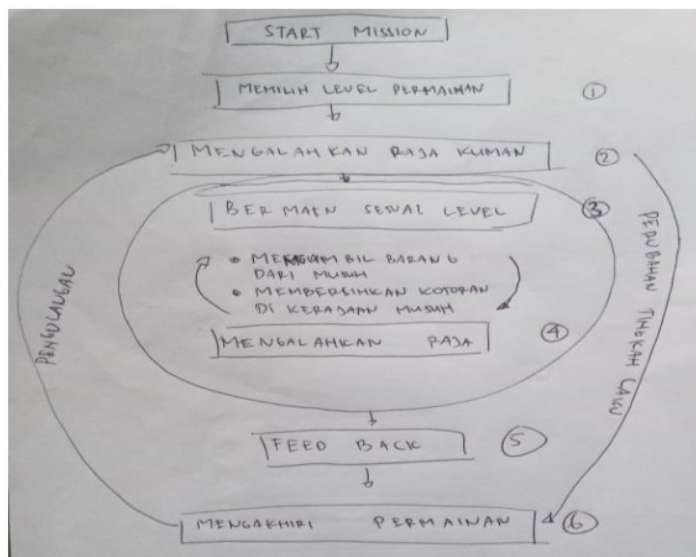 START MISSION
MEMILIH LEVEL PERMAINAN
1
MENGALAHKAN RAJA KUMAN
2
BERMAIN SESUAI LEVEL
3
MENGAMBIL BARANG
DARI MUSUH
MEMBERSIHKAN KOTORAN
DI KERAJAAN MUSUH
MENGALAHKAN RAJA
4
FEED BACK
5
MENGAKHIRI PERMAINAN
6
PENGULANGAN
PERUBAHAN TINGKAH LAKU